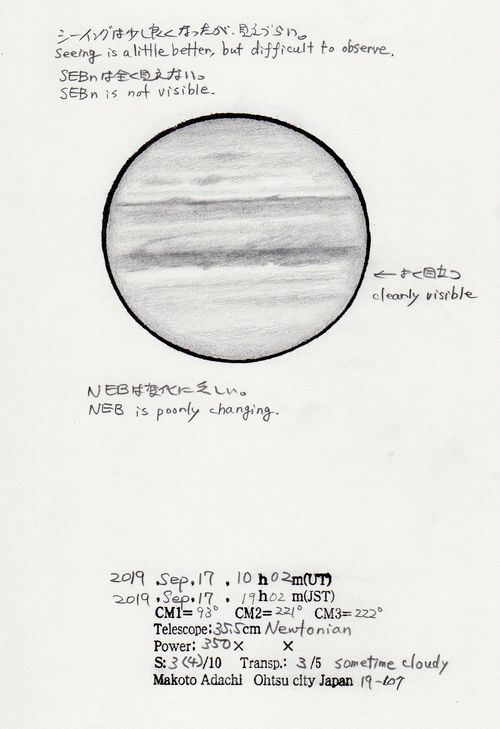 シーイングは少し良くなったが、見えづらい。
Seeing is a little better, but difficult to observe.
SEBnは全く見えない。
SEBn is not visible.
← よく目立つ
clearly visible
NEBは変化に乏しい。
NEB is poorly changing.
2019 .Sep.17 . 10 h 02 m(UT)
2019 .Sep.17 . 19 h 02 m(JST)
CM1= 93° CM2= 221° CM3= 222°
Telescope: 35.5cm Newtonian
Power: 350× ×
S: 3(4)/10 Transp.: 3 /5 sometime cloudy
Makoto Adachi Ohtsu city Japan 19-107